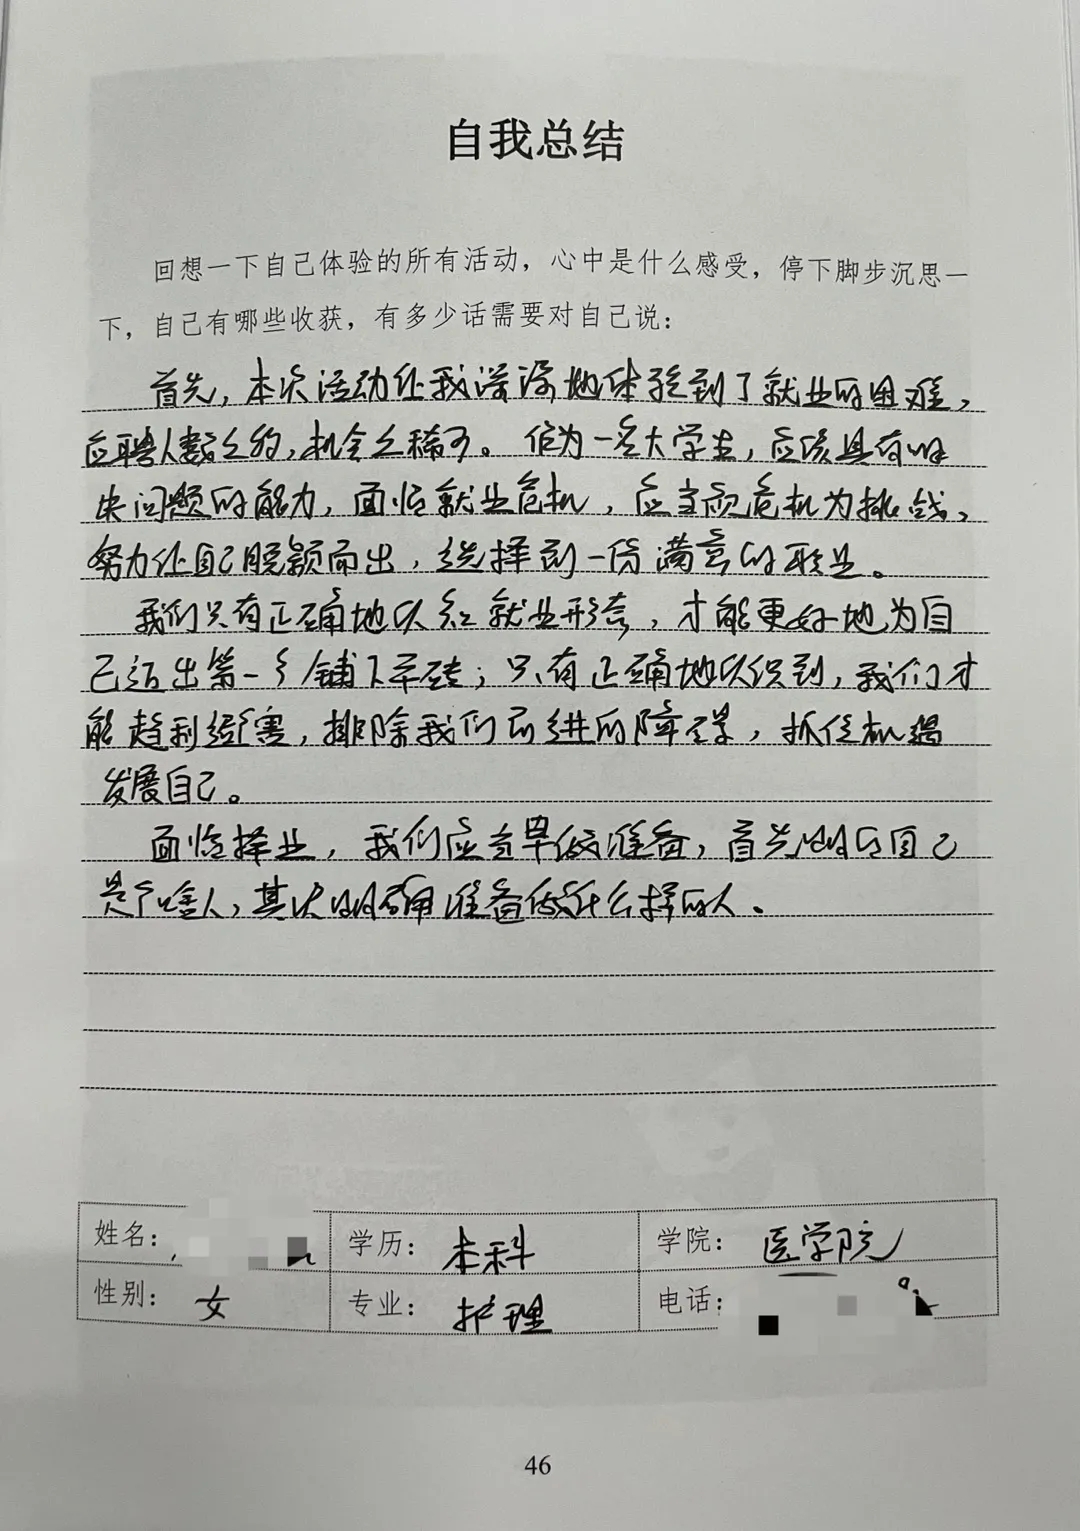 自我总结
回想一下自己体验的所有活动，心中是什么感受，停下脚步沉思一
下，自己有哪些收获，有多少话需要对自己说：
首先，本次活动让我深深地体验到了就业的困难，
应聘人数之多，机会之稀少。作为一名大学生，应该具有解
决问题的能力，面临就业危机，应当视危机为挑战，
努力让自己脱颖而出，选择到一份满意的职业。
我们只有正确地认知就业形势，才能更好地为自
己迈出第一步铺下平砖；只有正确地认识到，我们才
能趋利避害，排除我们前进的障碍，抓住机遇
发展自己。
面临择业，我们应当早做准备，首先明白自己
是个啥人，其次明确准备做什么样的人。
姓名：
学历：本科
学院：医学院
性别：女
专业：护理
电话：
46